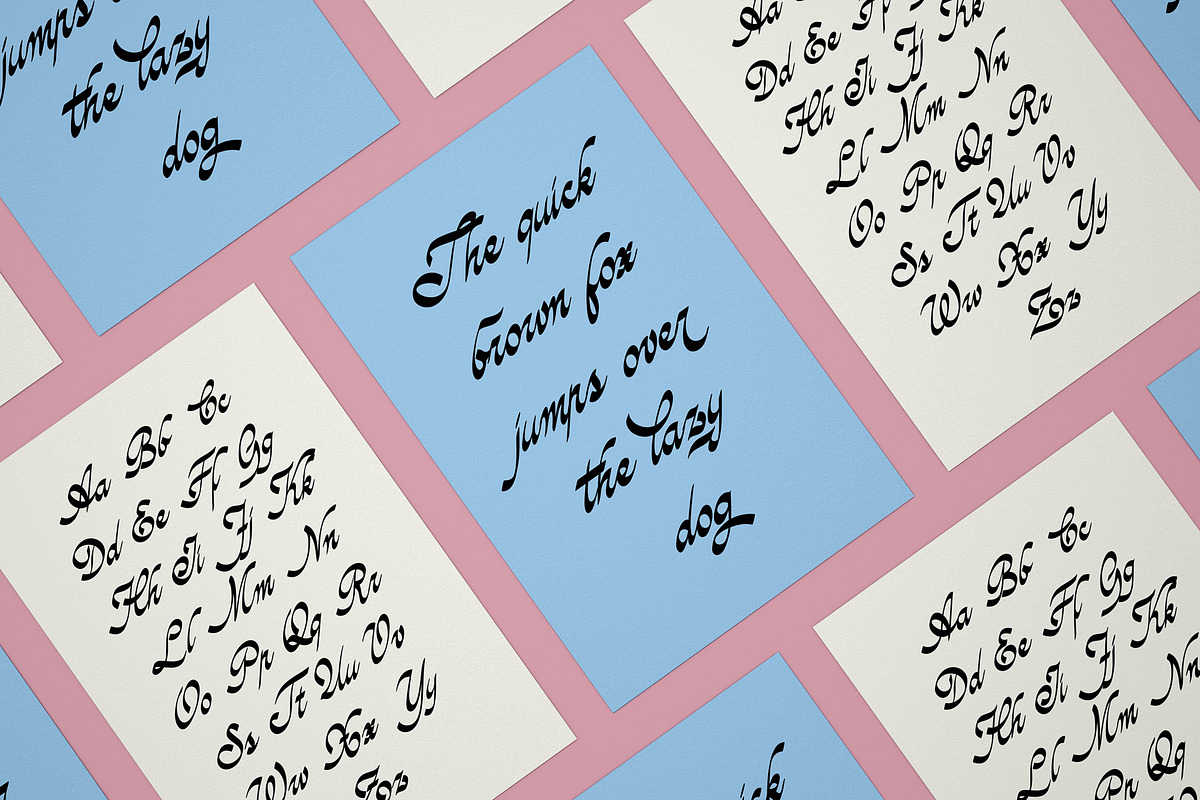 jumps
the lazy
dog
The quick
brown fox
jumps over
the lazy
dog
Aa
Dd Ee Ff
Hh Ii Jj Kk
Ll Mm Nn
Oo Pp Qq Rr
Ss Tt Uu Vv
Ww Xx Yy
Zz
Aa Bb Cc
Dd Ee Ff Gg
Hh Ii Jj Kk
Ll Mm Nn
Oo Pp Qq Rr
Ss Tt Uu Vv
Ww Xx Yy
Zz
Aa Bb Cc
Dd Ee Ff Gg
Hh Ii Jj Kk
Ll Mm Nn
Pp Qq